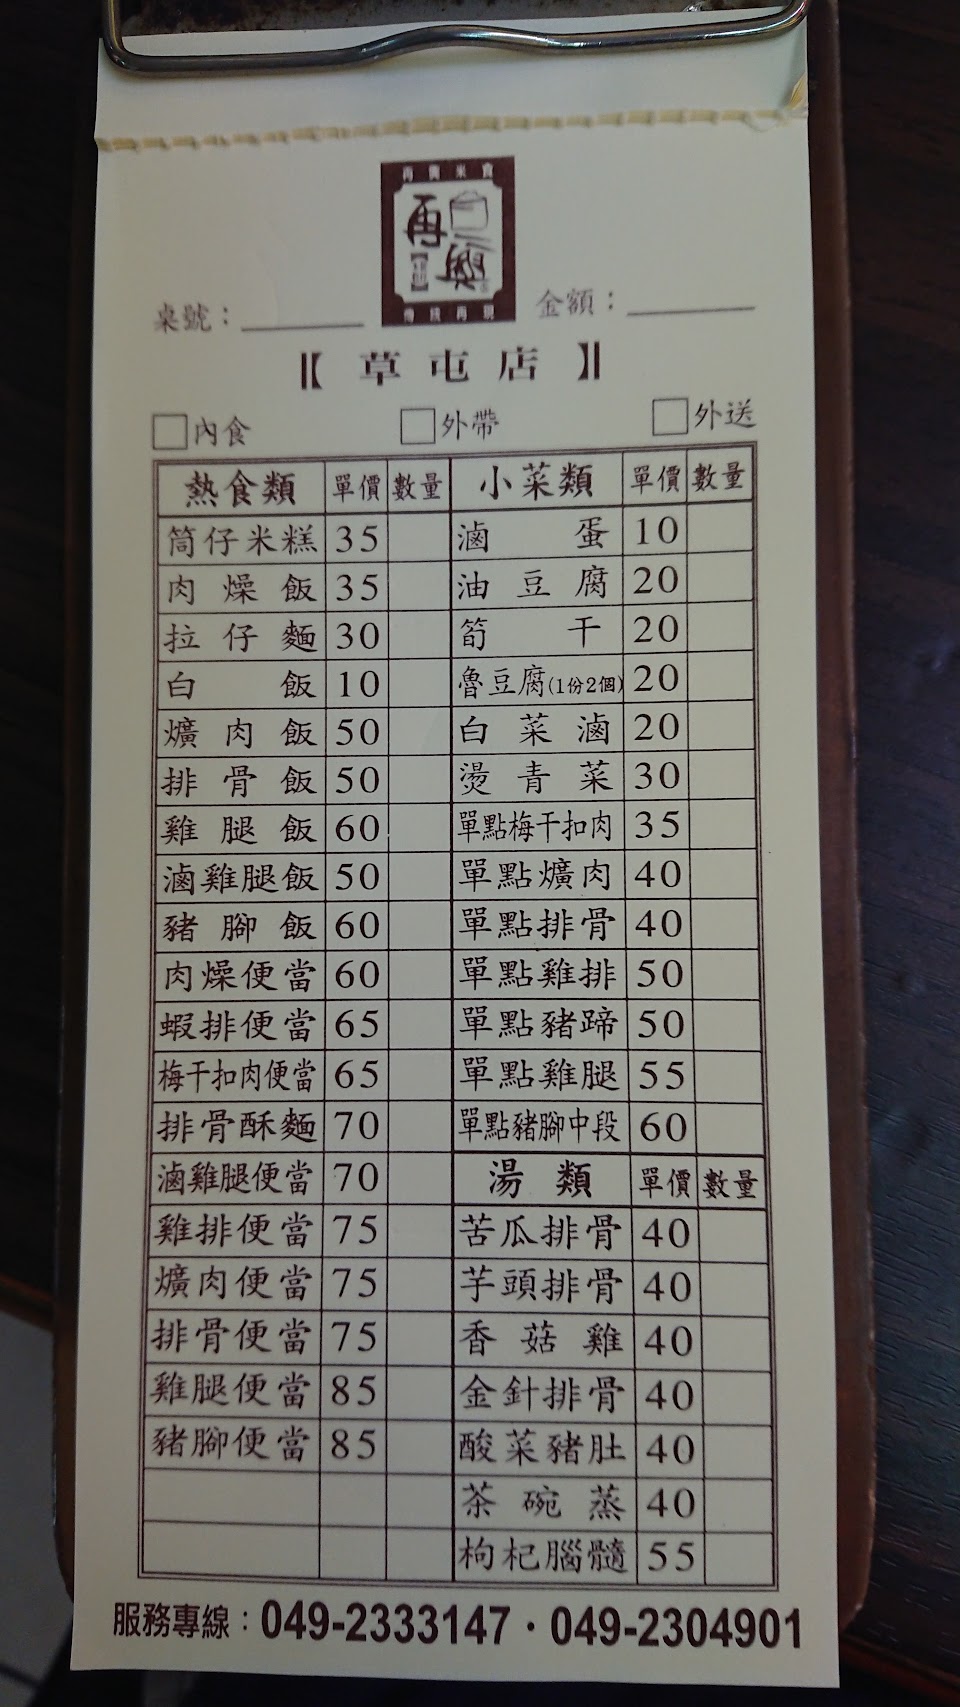 再興米食
再興
傳統再現
桌號：
金額：
【草屯店】
□內食 □外帶 □外送
熱食類 單價 數量 小菜類 單價 數量
筒仔米糕 35 滷蛋 10
肉燥飯 35 油豆腐 20
拉仔麵 30 筍干 20
白飯 10 魯豆腐(1份2個) 20
爌肉飯 50 白菜滷 20
排骨飯 50 燙青菜 30
雞腿飯 60 單點梅干扣肉 35
滷雞腿飯 50 單點爌肉 40
豬腳飯 60 單點排骨 40
肉燥便當 60 單點雞排 50
蝦排便當 65 單點豬蹄 50
梅干扣肉便當 65 單點雞腿 55
排骨酥麵 70 單點豬腳中段 60
滷雞腿便當 70 湯類 單價 數量
雞排便當 75 苦瓜排骨 40
爌肉便當 75 芋頭排骨 40
排骨便當 75 香菇雞 40
雞腿便當 85 金針排骨 40
豬腳便當 85 酸菜豬肚 40
茶碗蒸 40
枸杞腦髓 55
服務專線：049-2333147・049-2304901